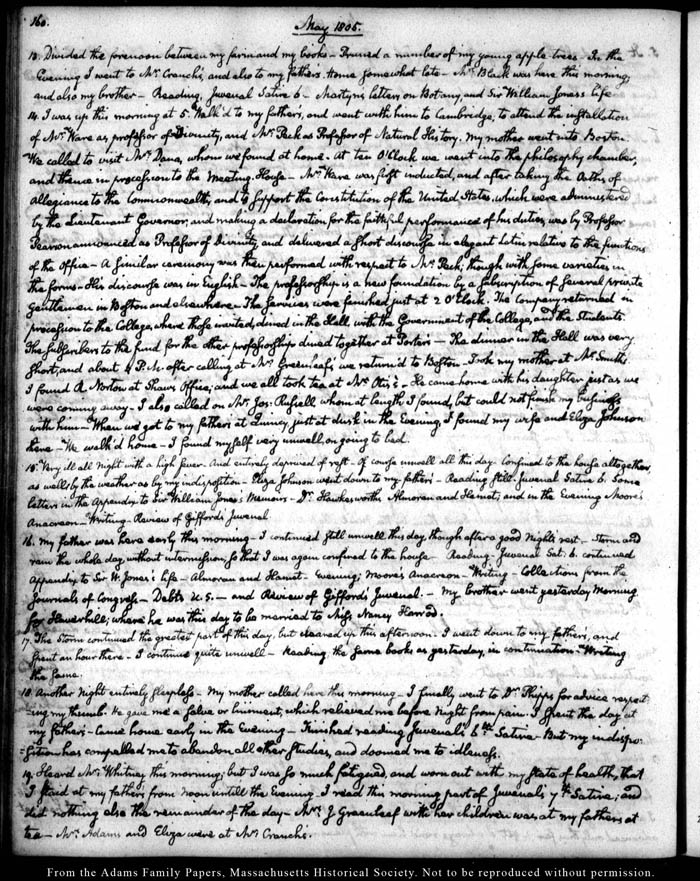 160.
May 1805.
13. Divided the forenoon between my farm and my books - Pruned a number of my young apple trees - In the
Evening I went to Mr Cranch's, and also to my father's. Home somewhat late - Mr Black was here this morning,
and also my brother - Reading, Juvenal Satire 6 - Martyn's letters on Botany, and Sir William Jones's Life
14. I was up this morning at 5. Walk'd to my father's, and went with him to Cambridge, to attend the installation
of Mr Ware as professor of Divinity, and Mr Peck as Professor of Natural History. My mother went into Boston.
We called to visit Mr Dana, whom we found at home. At ten O'Clock we went into the philosophy chamber,
and thence in procession to the Meeting-House - Mr Ware was first inducted, and after taking the Oaths of
Allegiance to the Commonwealth, and to support the Constitution of the United States, which were administered
by the Lieutenant Governor, and making a declaration for the faithful performance of his duties, was by Professor
Pearson announced as Professor of Divinity, and delivered a short discourse in elegant Latin relative to the functions
of the office - A similar ceremony was then performed with respect to Mr Peck, though with some varieties in
the forms - His discourse was in English - The professorship is a new foundation by a subscription of several private
Gentlemen in Boston and elsewhere - The services were finished just at 2 O'Clock. The Company returned in
procession to the College, where those invited, dined in the Hall, with the Government of the College, and the Students.
The subscribers to the fund for the other professorship dined together at Porter's - The dinner in the Hall was very
short, and about 4 P.M. after calling at Mr Greenleaf's we return'd to Boston. Took my mother at Mr Smith's
I found A. Norton at Shaw's Office, and we all took tea at Mr Otis's. - He came home with his daughter just as we
were coming away - I also called on Mr Jos: Russell, whom at length I found, but could not finish my business
with him - When we got to my father's at Quincy, just at dusk in the Evening, I found my wife and Eliza Johnson
there - We walk'd home - I found myself very unwell, on going to bed.
15. Very ill all Night with a high fever - And entirely deprived of rest - Of course unwell all this day. Confined to the house altogether,
as well by the weather as by my indisposition - Eliza Johnson went down to my father's - Reading still Juvenal Satire 6. Some
letters in the Appendix to Sir William Jones's Memoirs - Dr Hawkesworth's Almoran and Hamet; and in the Evening Moore's
Anacreon - Writing - Review of Gifford's Juvenal
16. My father was here early this morning - I continued still unwell this day, though after a good Night's rest - Storm and
rain the whole day, without intermission, so that I was again confined to the house - Reading. Juvenal Sat: 6. continued
Appendix to Sir W. Jones's life - Almoran and Hamet - Evening; Moore's Anacreon - Writing - Collections from the
Journals of Congress - Debts U.S. - and Review of Gifford's Juvenal. - My brother went yesterday Morning
for Haverhill; where he was this day to be married to Miss Nancy Harrod.
17. The storm continued the greatest part of this day, but cleared up this afternoon. I went down to my father's, and
spent an hour there - I continue quite unwell - Reading, the same books as yesterday, in continuation - Writing
the same.
18. Another Night entirely sleepless - My mother called here this morning - I finally went to Dr Phipps for advice respect-
-ing my thumb. He gave me a salve or liniment, which relieved me before Night from pain. I spent the day at
my father's - Came home early in the Evening - Finished reading Juvenal's 6th Satire - But my indispo-
-sition has compelled me to abandon all other studies, and doomed me to idleness.
19. Heard Mr Whitney this morning; but I was so much fatigued, and worn out with my state of health, that
I staid at my father's from noon untill the Evening - I read this morning part of Juvenal's 7th Satire; and
did nothing else the remainder of the day - Mrs J Greenleaf with her children was at my father's at
tea - Mrs Adams and Eliza were at Mr Cranch's.
From the Adams Family Papers, Massachusetts Historical Society. Not to be reproduced without permission.